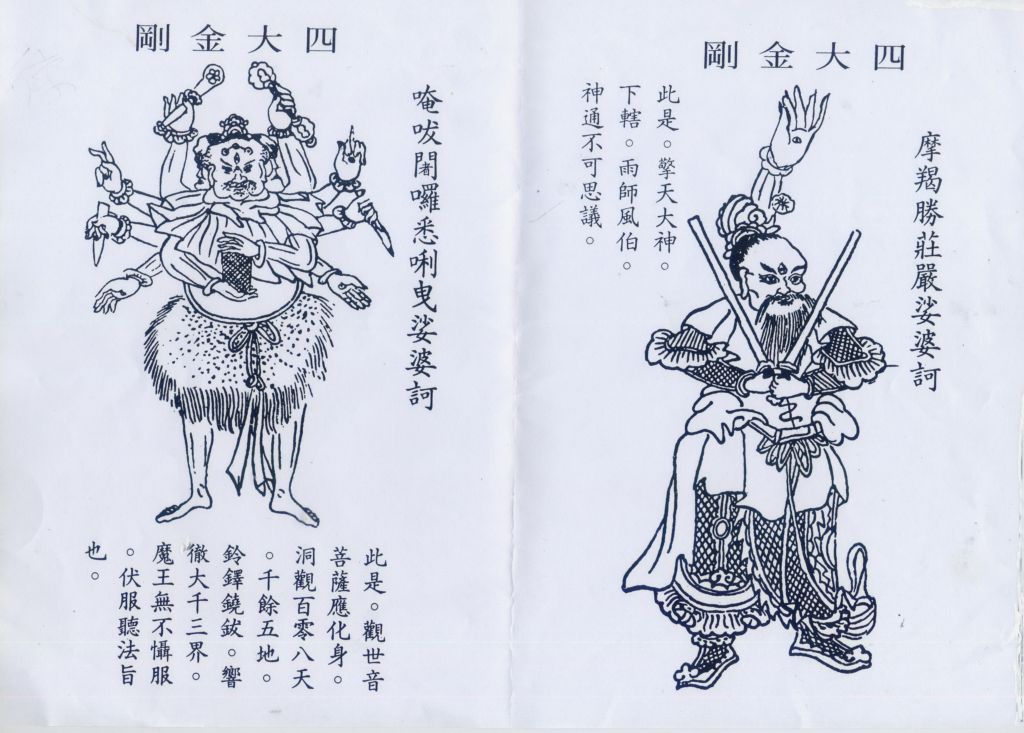 四大金剛
摩羯勝莊嚴娑婆訶
此是。擎天大神。
下轄。雨師風伯。
神通不可思議。
四大金剛
唵闍囉悉唎曳娑婆訶
此是。觀世音
菩薩應化身。
洞觀百零八天
。千餘五地。
鈴鐸鐃鈸。響
徹大千三界。
魔王無不懾服
。伏服聽法旨
也。